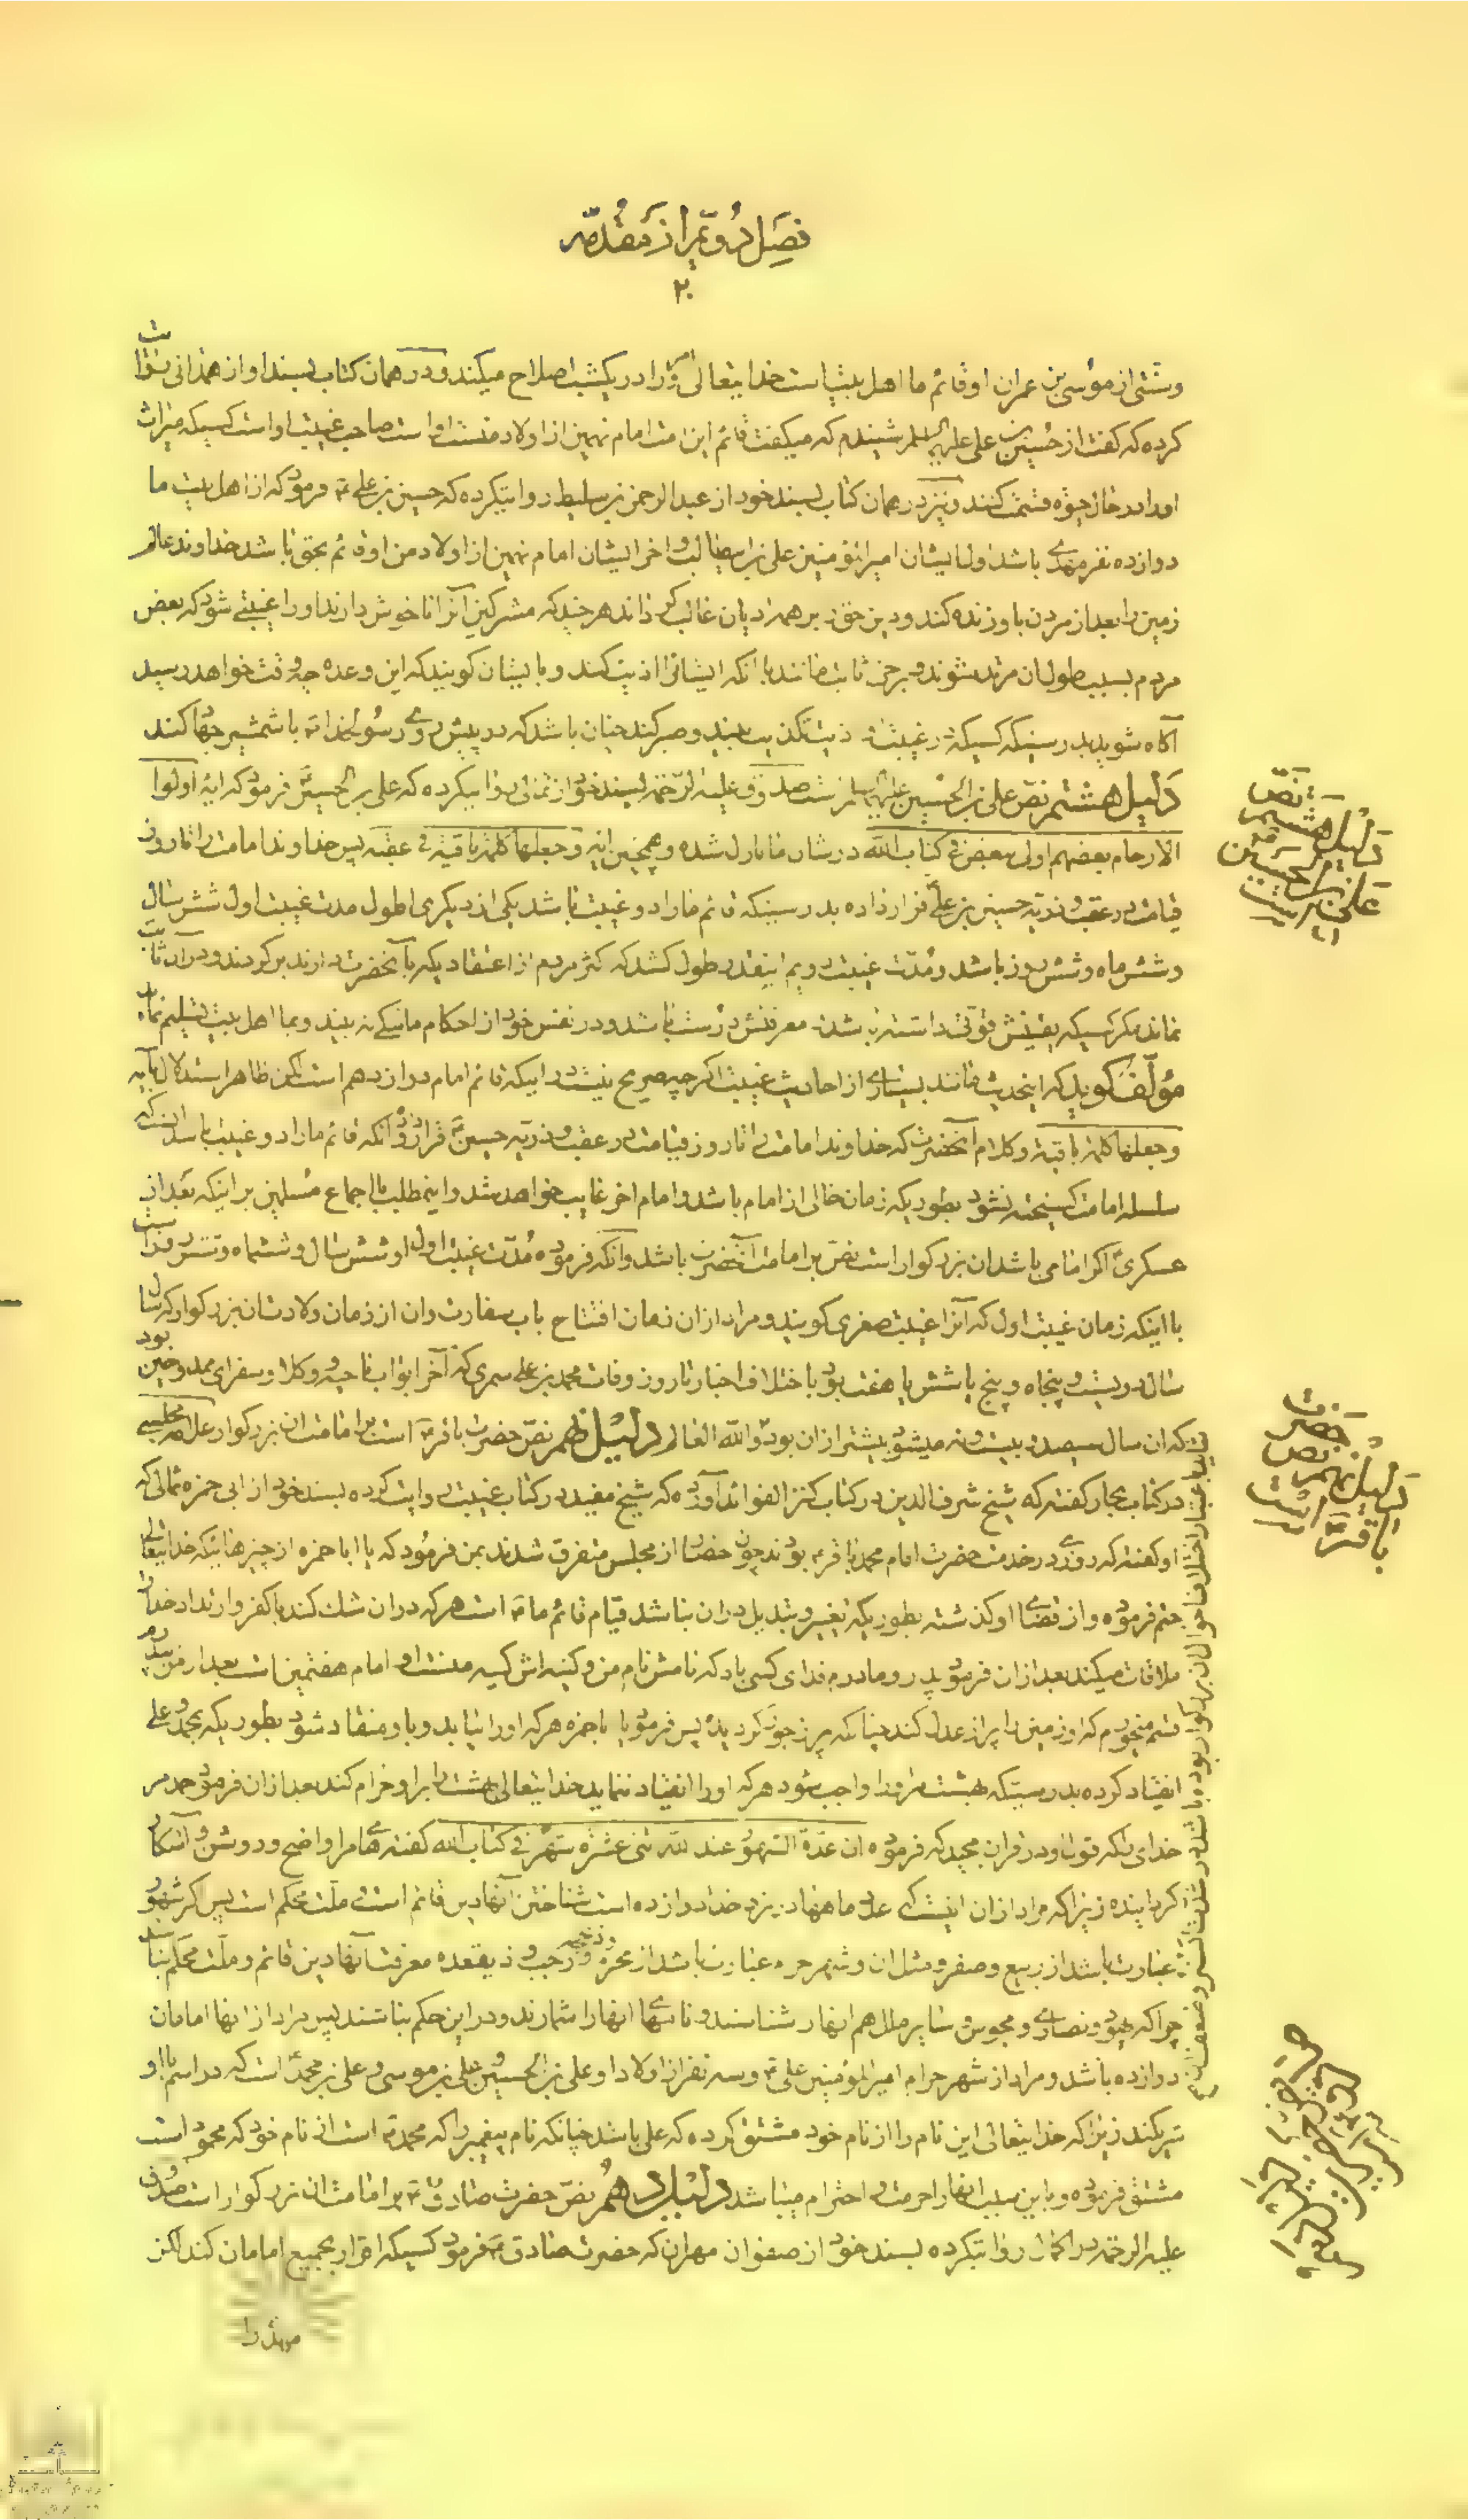 فصل دویم از مقدمه
۲۰
و سنتی از موسی بن عمران و قائم ما اهل بیت است خدایتعالی امر او را در یکشب اصلاح میکند و در همان کتاب بسند او از همدانی روایت
کرده که گفت از حسین بن علی علیهما السلم شنیدم که میگفت قائم این امت امام نهمین از اولاد منست او است صاحب غیبت او است کسیکه میراث
او را در حال حیوة قسمت کنند و نیز در همان کتاب بسند خود از عبد الرحمن بن سلیط روایتکرده که حسین بن علی فرمود که از اهل بیت ما
دوازده نفر مهدی باشد اول ایشان امیر المؤمنین علی بن ابیطالب و آخر ایشان امام نهمین از اولاد من او قائم بحق باشد خداوند عالم
زمین را بعد از مردن باو زنده کند و دین حق را بر همه ادیان غالب گرداند هر چند که مشرکین آنرا ناخوش دارند او را غیبتی شود که بعض
مردم بسبب طول آن مرتد شوند و برخی ثابت مانند با انکه ایشانرا اذیت کنند و بایشان گویند که این وعده چه وقت خواهد رسید
آگاه شوید بدرستیکه کسیکه در غیبت او باذیت و تکذیب صبر کند چنان باشد که در پیش روی رسول خدا با شمشیر جهاد کند
دلیل هشتم نص علی بن الحسین علیهما السلم است صدوق علیه الرحمة بسند خود از ثمالی روایتکرده که علی بن الحسین فرمود که ایه اولوا
الارحام بعضهم اولی ببعض فی کتاب الله در شان ما نازل شده و همچنین ایه و جعلها کلمة باقیة فی عقبه پس خداوند امامت را تا روز
قیامت در عقب و ذریه حسین بن علی قرار داده بدرستیکه قائم ما را دو غیبت باشد یکی از دیگری اطول مدت غیبت اول شش سال
و شش ماه و شش روز باشد و مدت غیبت دویم اینقدر طول کشد که اکثر مردم از اعتقادیکه بآنحضرت دارند برگردند و در آن ثابت
نماند مگر کسیکه یقینش قوتی داشته باشد و معرفتش درست باشد و در نفس خود از احکام ما تنگی نه بیند و بما اهل بیت تسلیم نماید
مؤلف گوید که اینحدیث مانند بسیاری از احادیث غیبت اگر چه صریح نیست در اینکه قائم امام دوازدهم است لکن ظاهر استدلال بآیه
و جعلها کلمة باقیة و کلام آنحضرت که خداوند امامت را تا روز قیامت در عقب و ذریه حسین قرار داده و انکه قائم ما را دو غیبت باشد اینست که
سلسله امامت گسیخته نشود بطوریکه زمان خالی از امام باشد و امام اخر غایب خواهد شد و اینمطلب با اجماع مسلمین بر اینکه بعد از
عسکری اگر امامی باشد ان بزرگوار است نص بر امامت آنحضرت باشد و آنکه فرموده مدت غیبت اول او شش سال و ششماه و شش روز است
با اینکه زمان غیبت اول که آنرا غیبت صغری گویند و مراد از ان زمان افتتاح باب سفارت و ان از زمان ولادت ان بزرگوار که سال
سال دویست و پنجاه و پنج یا شش یا هفت بود باختلاف اخبار تا روز وفات محمد بن علی سمری که آخر ابواب ناحیه و وکلا و سفرای ممدوحین بود
که ان سال سیصد و بیست و نه میشود بیشتر از ان بود و الله العالم دلیل نهم نص حضرت باقر است بر امامت ان بزرگوار علامه مجلسی
در کتاب بحار گفته که شیخ شرف الدین در کتاب کنز الفوائد آورده که شیخ مفید در کتاب غیبت روایت کرده بسند خود از ابی حمزه ثمالی که
او گفته که روزی در خدمت حضرت امام محمد باقر بودند چون حضار از مجلس متفرق شدند بمن فرمود که یا ابا حمزه از چیزهائیکه خدایتعالی
حتم فرموده و از قضای او گذشته بطوریکه تغییر و تبدیل در ان نباشد قیام قائم ما است هر که در ان شک کند با کفر و ارتداد خدا را
ملاقات میکند بعد از ان فرمود پدر و مادرم فدای کسی باد که نامش نام من و کنیه اش کنیه منست او امام هفتمین است بعد از من بپدرم
قسم میخورم که او زمین را پر از عدل کند چنانکه پر از جور گردیده پس فرمود یا ابا حمزه هر که او را بیابد و باو منقاد شود بطوریکه بمحمد و علی
انقیاد کرده بدرستیکه بهشت مر او را واجب شود هر که او را انقیاد ننماید خدایتعالی بهشت را بر او حرام کند بعد از ان فرمود حمد مر
خدای را که قول او در قران مجید که فرموده ان عدة الشهور عند الله اثنی عشر شهرا فی کتاب الله گفته های ما را واضح و روشن و آشکار
گردانیده زیرا که مراد از ان اینست که عدد ماهها در نزد خدا دوازده است شناختن آنها دین قائم است و ملت محکم است پس اگر شهور
عبارت باشد از ربیع و صفر و مثل ان و شهر حرم عبارت باشد از محرم و رجب و ذیقعده و ذیحجه معرفت آنها دین قائم و ملت محکم نباشد
چرا که یهود و نصاری و مجوس و سایر ملل هم انها را شناسند و نامهای انها را شمارند و در این حکم نباشند پس مراد از انها امامان
دوازده باشد و مراد از شهر حرام امیر المؤمنین علی و سه نفر از اولاد او علی بن الحسین و علی بن موسی و علی بن محمد است که در اسم با او
شریکند زیرا که خدایتعالی این نام را از نام خود مشتق کرده که علی باشد چنانکه نام پیغمبر را که محمد است از نام خود که محمود است
مشتق فرموده و باین سبب انها را حرمت و احترام میباشد دلیل دهم نص حضرت صادق بر امامت ان بزرگوار است صدوق
علیه الرحمة در اکمال روایتکرده بسند خود از صفوان مهران که حضرت صادق فرمود کسیکه اقرار بجمیع امامان کند لکن
مهدی را
دلیل هشتم نص
علی بن الحسین است
دلیل نهم نص حضرت
باقر است